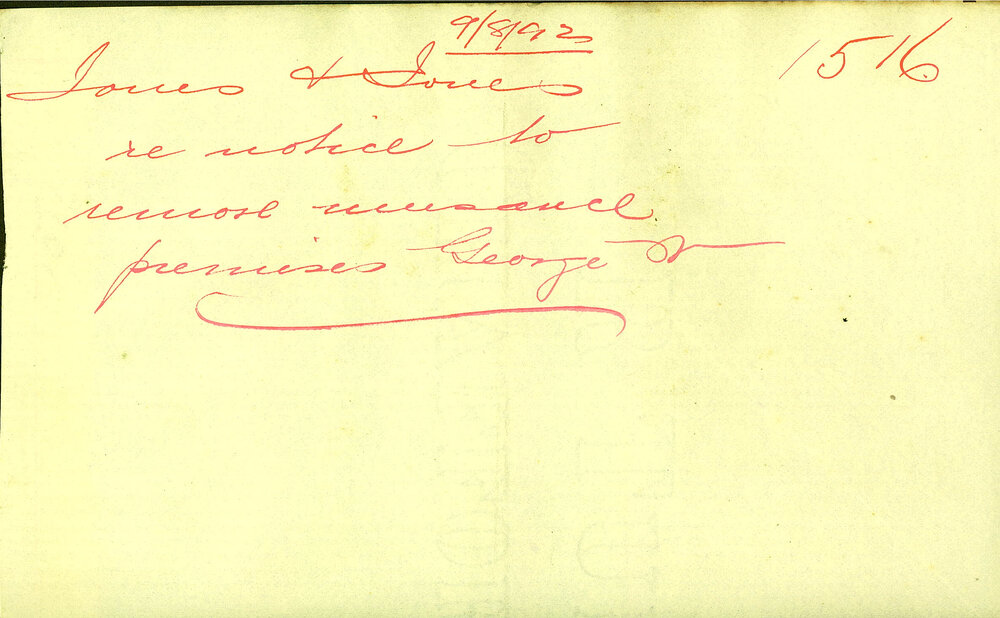 9/8/92
1516
Jones & Jones
re notice to
remove nuisance
premises George St